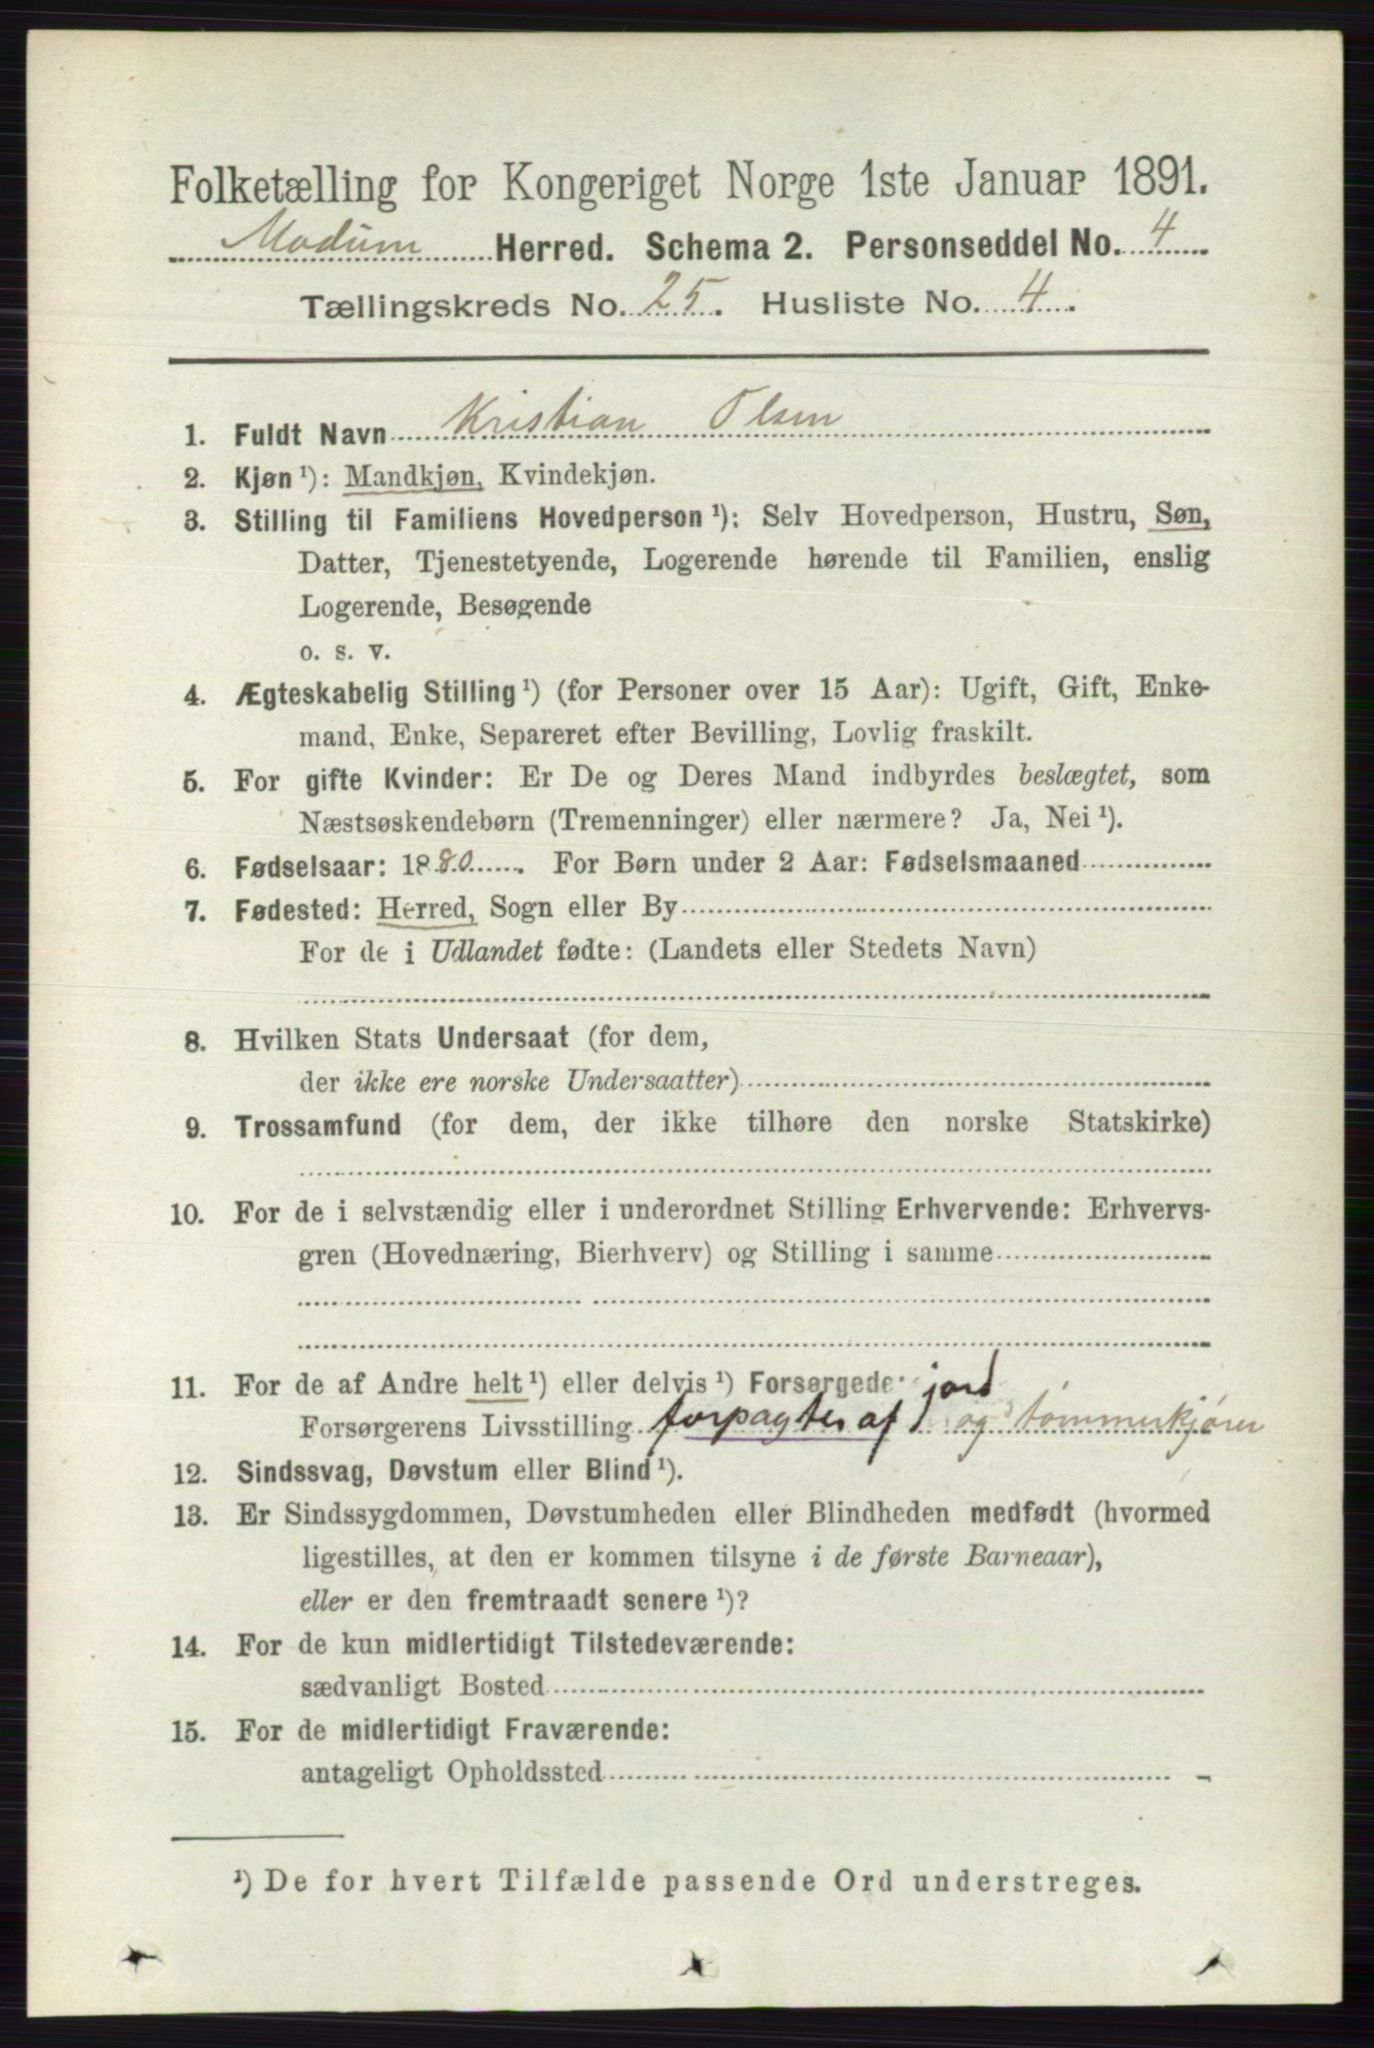 Folketælling for Kongeriget Norge 1ste Januar 1891.
Modum Herred. Schema 2. Personseddel No. 4
Tællingskreds No. 25. Husliste No. 4.
1. Fuldt Navn Kristian Olsen
2. Kjøn ¹): Mandkjøn, Kvindekjøn.
3. Stilling til Familiens Hovedperson ¹): Selv Hovedperson, Hustru, Søn,
Datter, Tjenestetyende, Logerende hørende til Familien, enslig
Logerende, Besøgende
o. s. v.
4. Ægteskabelig Stilling ¹) (for Personer over 15 Aar): Ugift, Gift, Enke-
mand, Enke, Separeret efter Bevilling, Lovlig fraskilt.
5. For gifte Kvinder: Er De og Deres Mand indbyrdes beslægtet, som
Næstsøskendebørn (Tremenninger) eller nærmere? Ja, Nei ¹).
6. Fødselsaar: 1880. For Børn under 2 Aar: Fødselsmaaned
7. Fødested: Herred, Sogn eller By
For de i Udlandet fødte: (Landets eller Stedets Navn)
8. Hvilken Stats Undersaat (for dem,
der ikke ere norske Undersaatter)
9. Trossamfund (for dem, der ikke tilhøre den norske Statskirke)
10. For de i selvstændig eller i underordnet Stilling Erhvervende: Erhvervs-
gren (Hovednæring, Bierhverv) og Stilling i samme
11. For de af Andre helt ¹) eller delvis ¹) Forsørgede: jord
Forsørgerens Livsstilling forpagter af og tømmerkjører
12. Sindssvag, Døvstum eller Blind ¹).
13. Er Sindssygdommen, Døvstumheden eller Blindheden medfødt (hvormed
ligestilles, at den er kommen tilsyne i de første Barneaar),
eller er den fremtraadt senere ¹)?
14. For de kun midlertidigt Tilstedeværende:
sædvanligt Bosted
15. For de midlertidigt Fraværende:
antageligt Opholdssted
¹) De for hvert Tilfælde passende Ord understreges.